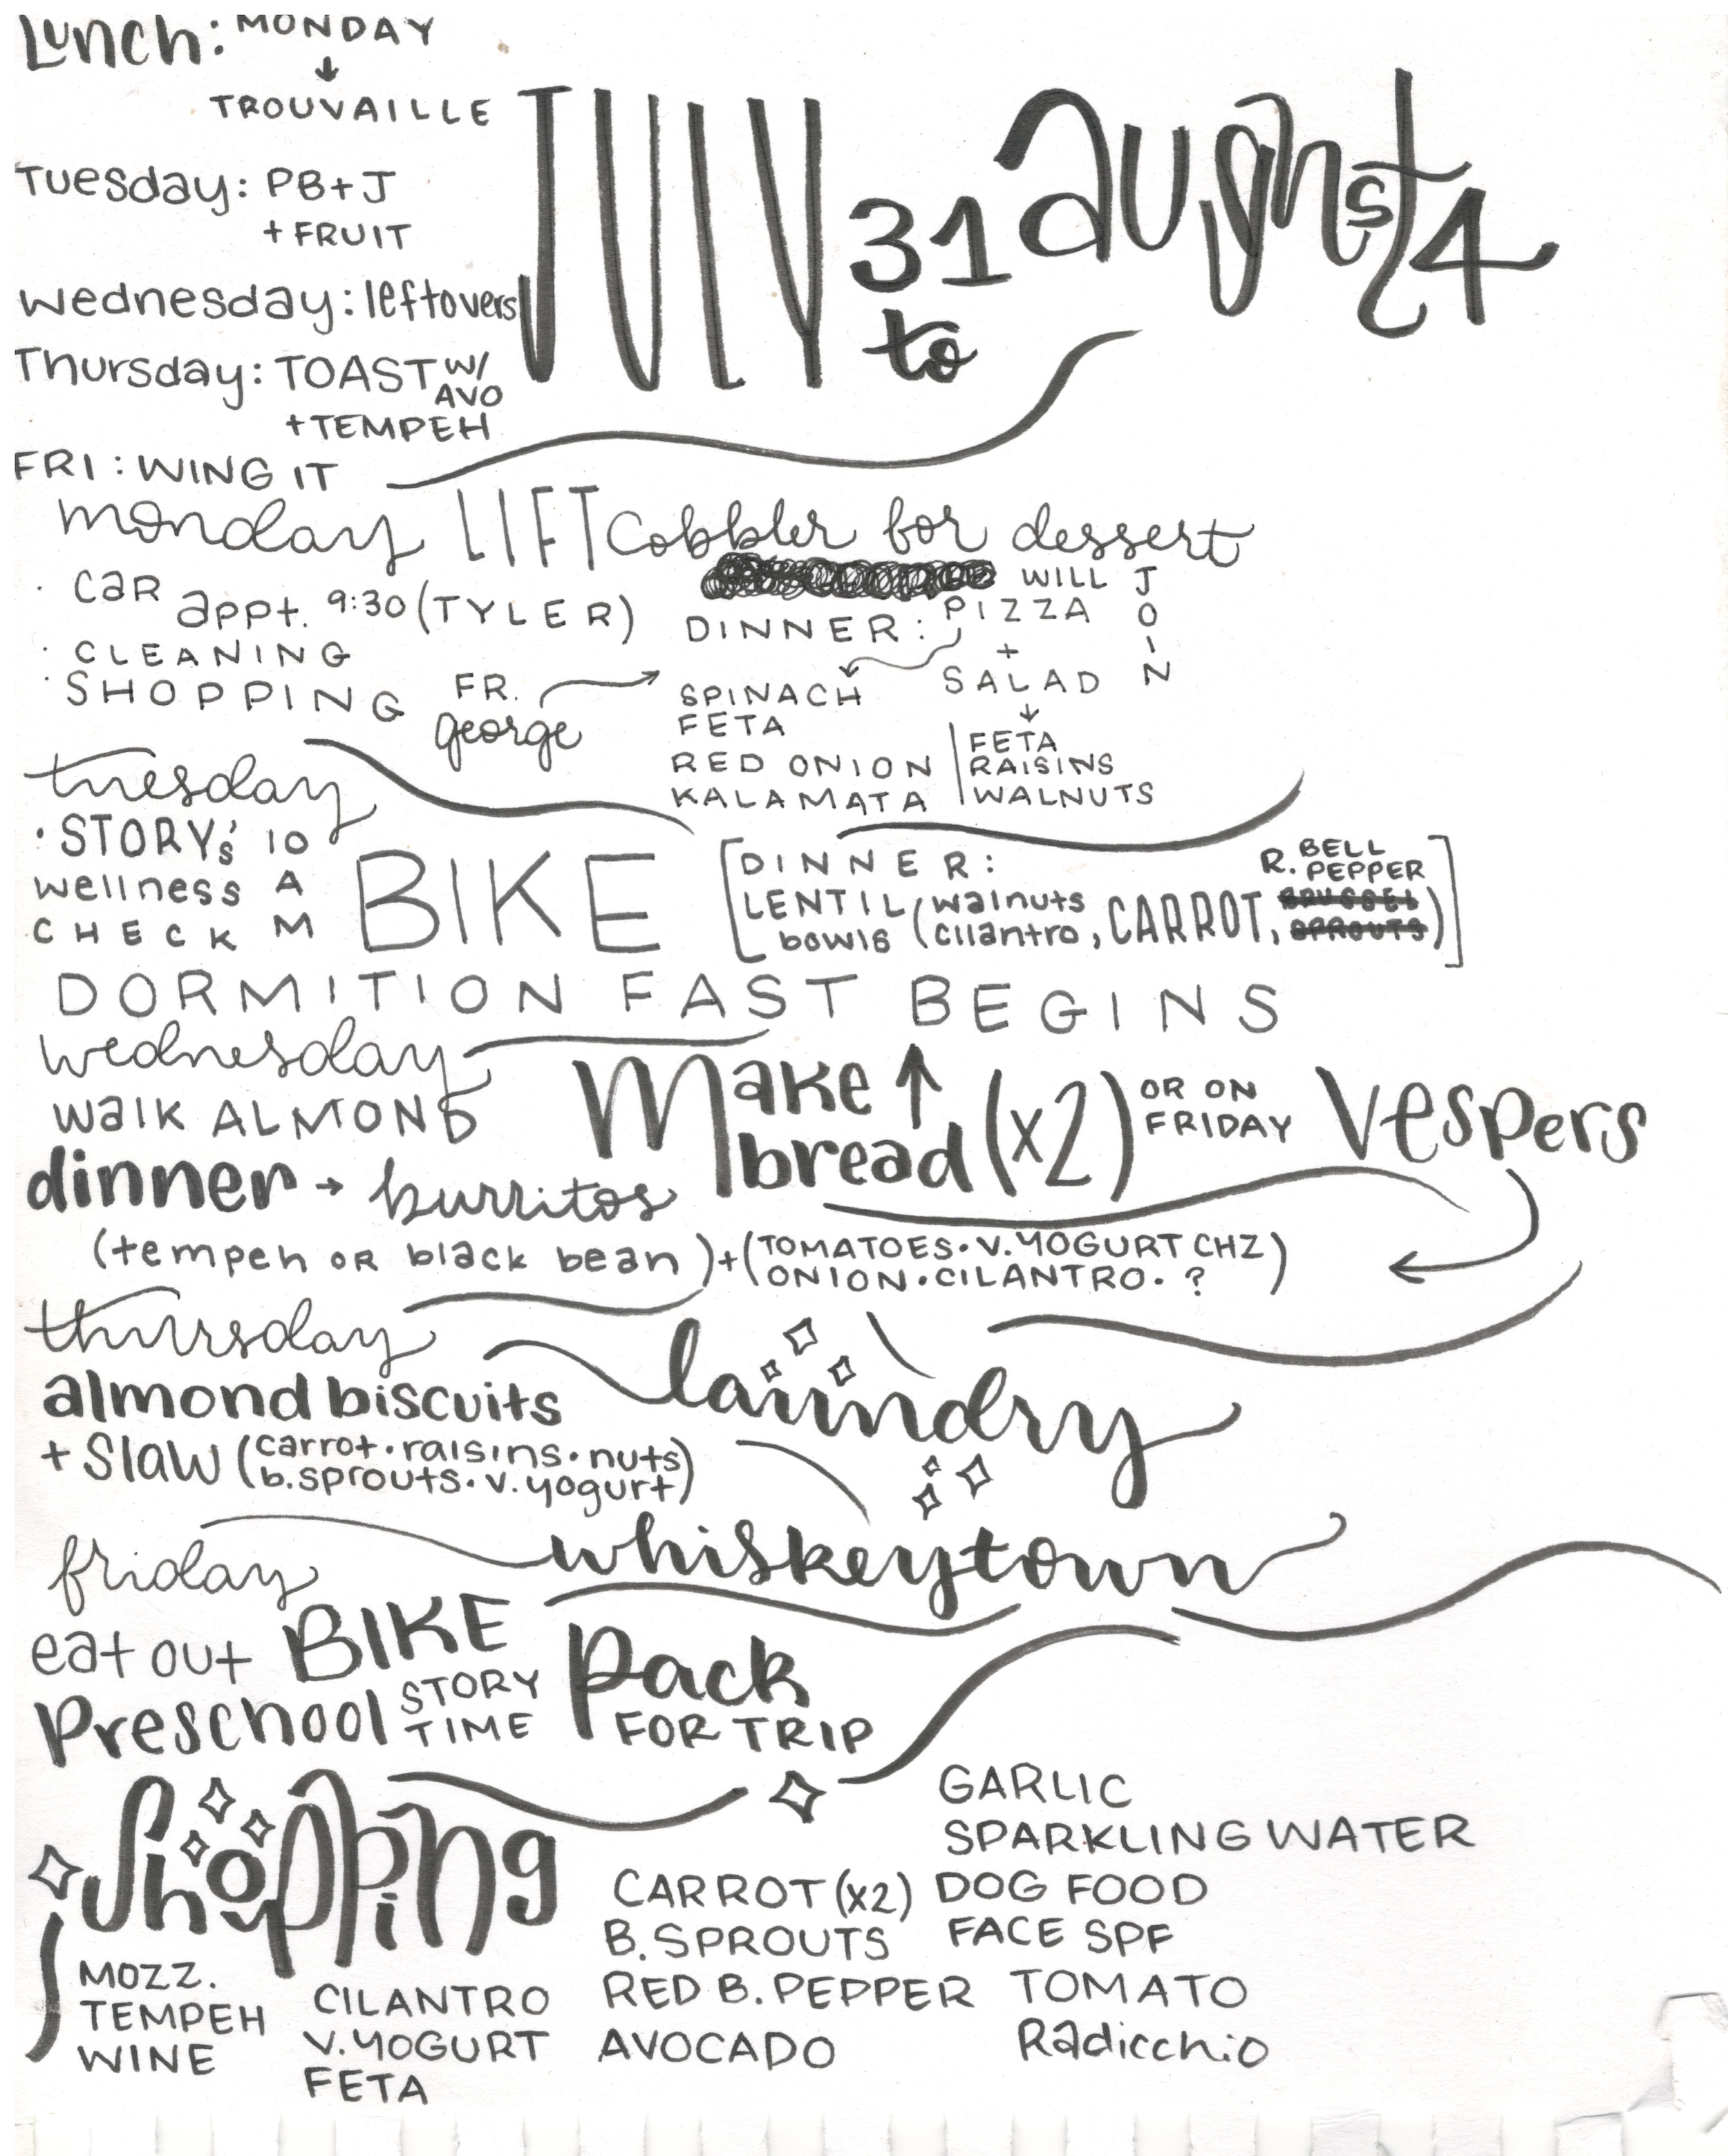 Lunch: MONDAY
↓
TROUVAILLE
Tuesday: PB+J
+ FRUIT
wednesday: leftovers
Thursday: TOAST W/
AVO
+TEMPEH
FRI: WING IT
JULY 31
to
August 4
monday LIFT Cobbler for dessert
· car appt. 9:30 (TYLER)
· CLEANING
· SHOPPING
FR.
george →
WILL JOIN
DINNER: PIZZA
+
SALAD
↓
SPINACH
FETA
RED ONION
KALAMATA
FETA
RAISINS
WALNUTS
tuesday
· STORY's' 10 AM
wellness
CHECK
BIKE
[DINNER:
LENTIL bowls (walnuts
cilantro, CARROT, R. BELL
PEPPER
BRUSSEL
SPROUTS)]
DORMITION FAST BEGINS
wednesday
walk ALMOND
Make ↑
bread (x2) OR ON
FRIDAY
Vespers
dinner → burritos
(tempeh OR black bean) + (TOMATOES · V.YOGURT CHZ
ONION · CILANTRO · ?)
thursday
laundry
almond biscuits
+ Slaw (carrot · raisins · nuts
b.sprouts · v.yogurt)
whiskeytown
friday
eat out BIKE
Preschool STORY
TIME
Pack
FOR TRIP
Shopping
MOZZ.
TEMPEH
WINE
CILANTRO
V.YOGURT
FETA
CARROT (x2)
B. SPROUTS
RED B. PEPPER
AVOCADO
GARLIC
SPARKLING WATER
DOG FOOD
FACE SPF
TOMATO
Radicchio